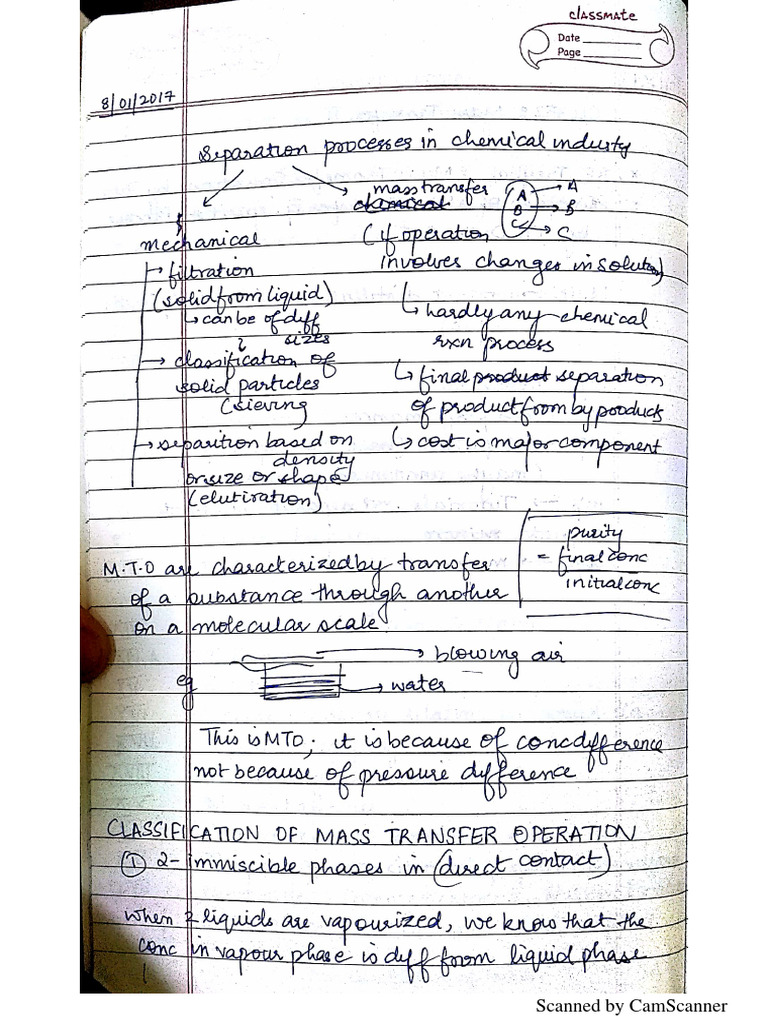 classmate
Date
Page
8/01/2017
Separation processes in chemical industry
mass transfer
chemical
A
B
C
A
B
C
mechanical
(if operation
involves changes in solution)
filtration
(solid from liquid)
↳ can be of diff
sizes
↳ hardly any chemical
rxn process
→ classification of
solid particles
(sieving
↳ final product separation
of product from by products
→ separition based on
density
or size or shape
(elutiration)
↳ cost is major component
purity
= final conc
initial conc
M.T.O are characterized by transfer
of a substance through another
on a molecular scale
→ blowing air
eg
→ water
This is MTO; it is because of conc difference
not because of pressure difference
CLASSIFICATION OF MASS TRANSFER OPERATION
① 2- immiscible phases in (direct contact)
when 2 liquids are vapourized, we know that the
conc in vapour phase is diff from liquid phase
Scanned by CamScanner